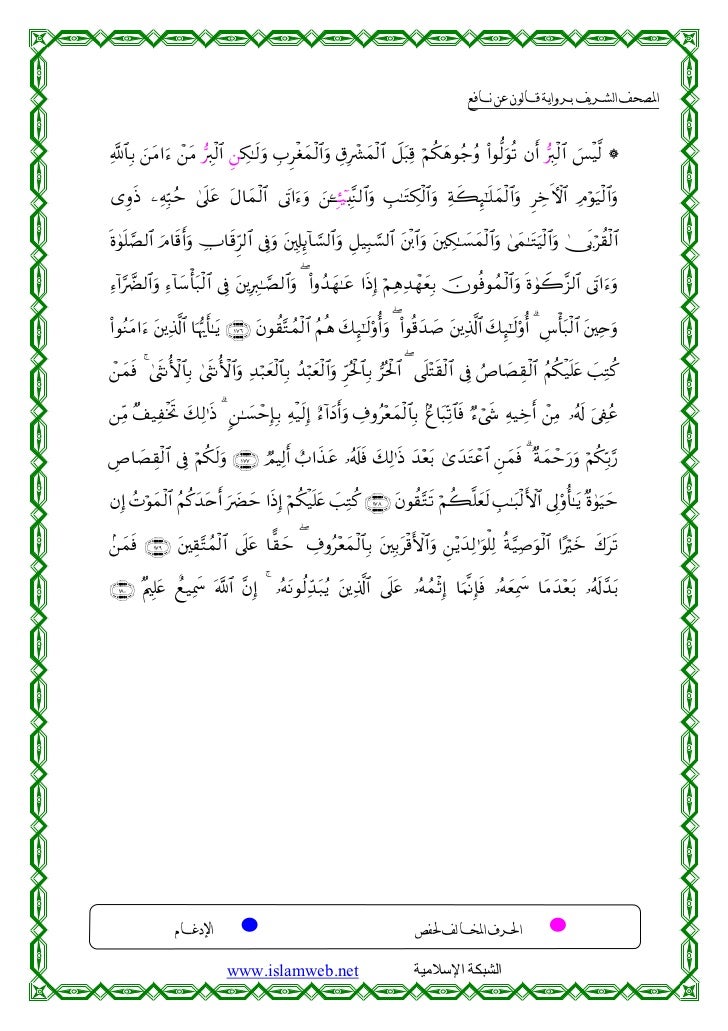 المصحف الشريف برواية قالون عن نافع
۞ لَّيْسَ ٱلْبِرُّ أَن تُوَلُّواْ وُجُوهَكُمْ قِبَلَ ٱلْمَشْرِقِ وَٱلْمَغْرِبِ وَلَٰكِنِ ٱلْبِرُّ مَنْ ءَامَنَ بِٱللَّهِ
وَٱلْيَوْمِ ٱلْأٓخِرِ وَٱلْمَلَٰٓئِكَةِ وَٱلْكِتَٰبِ وَٱلنَّبِيٓـِٔـۧنَ وَءَاتَى ٱلْمَالَ عَلَىٰ حُبِّهِۦ ذَوِى
ٱلْقُرْبَىٰ وَٱلْيَتَٰمَىٰ وَٱلْمَسَٰكِينَ وَٱبْنَ ٱلسَّبِيلِ وَٱلسَّآئِلِينَ وَفِى ٱلرِّقَابِ وَأَقَامَ ٱلصَّلَوٰةَ
وَءَاتَى ٱلزَّكَوٰةَ وَٱلْمُوفُونَ بِعَهْدِهِمْ إِذَا عَٰهَدُواْ ۖ وَٱلصَّٰبِرِينَ فِى ٱلْبَأْسَآءِ وَٱلضَّرَّآءِ
وَحِينَ ٱلْبَأْسِ ۗ أُوْلَٰٓئِكَ ٱلَّذِينَ صَدَقُواْ ۖ وَأُوْلَٰٓئِكَ هُمُ ٱلْمُتَّقُونَ ١٧٦ يَٰٓأَيُّهَا ٱلَّذِينَ ءَامَنُواْ
كُتِبَ عَلَيْكُمُ ٱلْقِصَاصُ فِى ٱلْقَتْلَى ۖ ٱلْحُرُّ بِٱلْحُرِّ وَٱلْعَبْدُ بِٱلْعَبْدِ وَٱلْأُنثَىٰ بِٱلْأُنثَىٰ ۚ فَمَنْ
عُفِىَ لَهُۥ مِنْ أَخِيهِ شَىْءٌ فَٱتِّبَاعٌۢ بِٱلْمَعْرُوفِ وَأَدَآءٌ إِلَيْهِ بِإِحْسَٰنٍ ۗ ذَٰلِكَ تَخْفِيفٌ مِّن
رَّبِّكُمْ وَرَحْمَةٌ ۗ فَمَنِ ٱعْتَدَىٰ بَعْدَ ذَٰلِكَ فَلَهُۥ عَذَابٌ أَلِيمٌ ١٧٧ وَلَكُمْ فِى ٱلْقِصَاصِ
حَيَوٰةٌ يَٰٓأُوْلِى ٱلْأَلْبَٰبِ لَعَلَّكُمْ تَتَّقُونَ ١٧٨ كُتِبَ عَلَيْكُمْ إِذَا حَضَرَ أَحَدَكُمُ ٱلْمَوْتُ إِن
تَرَكَ خَيْرًا ٱلْوَصِيَّةُ لِلْوَٰلِدَيْنِ وَٱلْأَقْرَبِينَ بِٱلْمَعْرُوفِ ۖ حَقًّا عَلَى ٱلْمُتَّقِينَ ١٧٩ فَمَنۢ
بَدَّلَهُۥ بَعْدَمَا سَمِعَهُۥ فَإِنَّمَآ إِثْمُهُۥ عَلَى ٱلَّذِينَ يُبَدِّلُونَهُۥٓ ۚ إِنَّ ٱللَّهَ سَمِيعٌ عَلِيمٌ ١٨٠
الحرف المخالف لحفص الإدغام
الشبكة الإسلامية www.islamweb.net